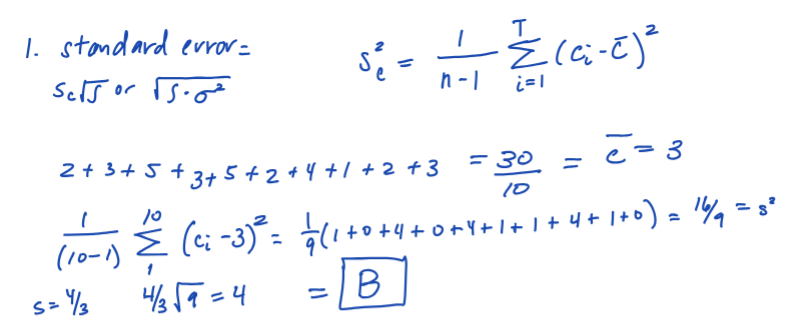 1. standard error=   s_e² = 1/(n-1) Σ_{i=1}^{T} (c_i - c̄)²
s_c√5 or √(5·σ²)
2+3+5+3+5+2+4+1+2+3 = 30/10 = c̄ = 3
1/(10-1) Σ_{1}^{10} (c_i - 3)² = 1/9(1+0+4+0+4+1+1+4+1+0) = 16/9 = s²
s = 4/3   4/3√9 = 4   = B